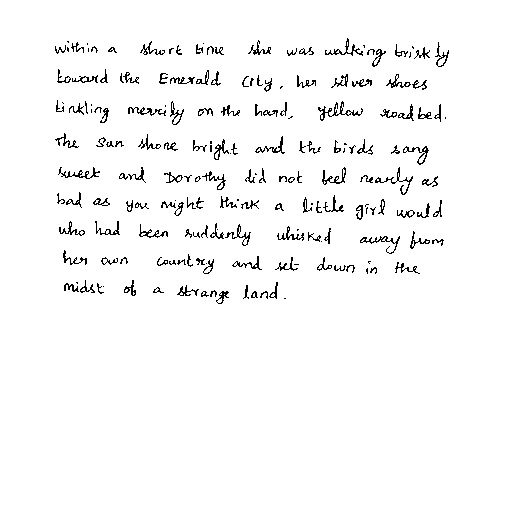 within a short time she was walking briskly
toward the Emerald City, her silver shoes
tinkling merrily on the hard, yellow roadbed.
The sun shone bright and the birds sang
sweet and Dorothy did not feel nearly as
bad as you might think a little girl would
who had been suddenly whisked away from
her own country and set down in the
midst of a strange land.